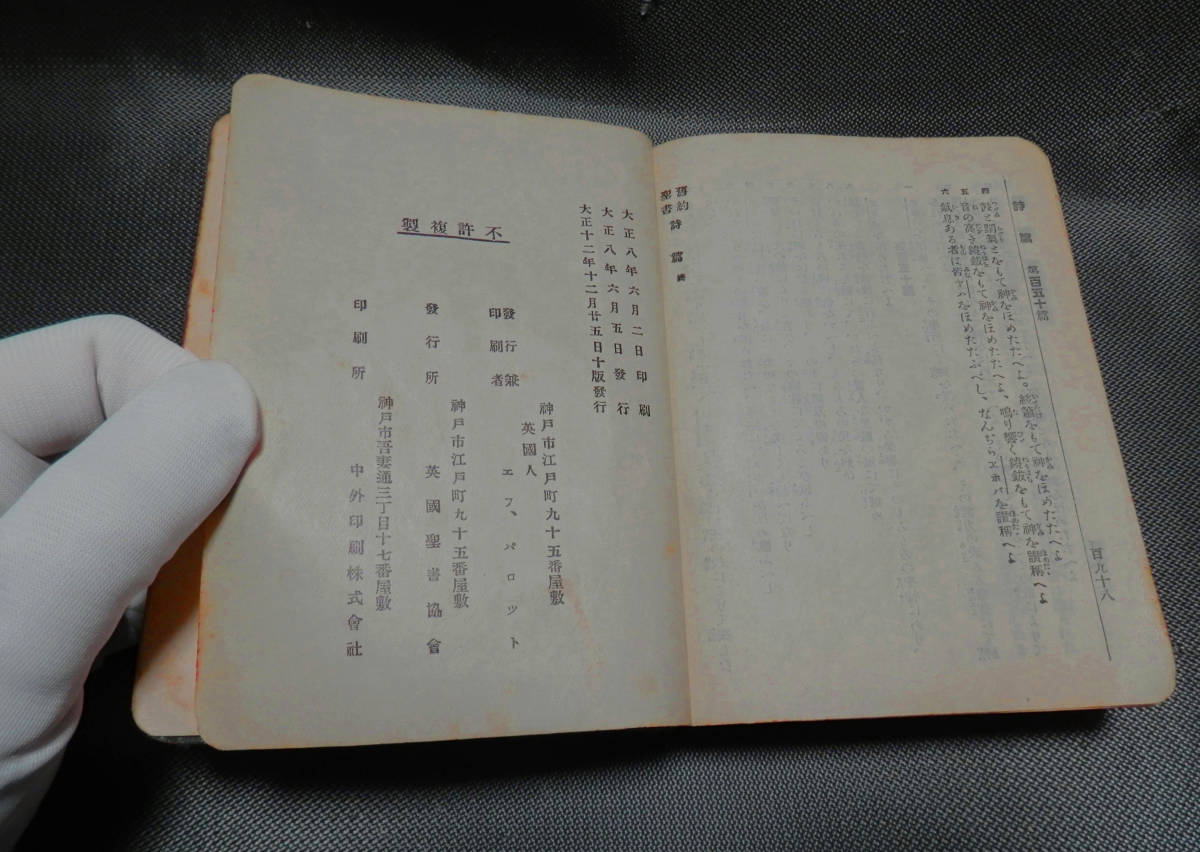 詩篇 第百五十篇
百九十八
四 鼓と蹈舞とをもて神をほめたたへよ。絃簫をもて神をほめたたへよ
五 音の高き鐃鈸をもて神をほめたたへよ、鳴り響く鐃鈸をもて神を讃稱へよ
六 氣息ある者は皆ヤハをほめたたふべし、なんぢらエホバを讃稱へよ
舊約聖書 詩篇 終
大正八年六月二日印刷
大正八年六月五日發行
大正十二年十二月廿五日十版發行
不許複製
神戸市江戸町九十五番屋敷
英國人
發行兼印刷者 エフ、パロット
神戸市江戸町九十五番屋敷
發行所 英國聖書協會
神戸市吾妻通三丁目十七番屋敷
印刷所 中外印刷株式會社